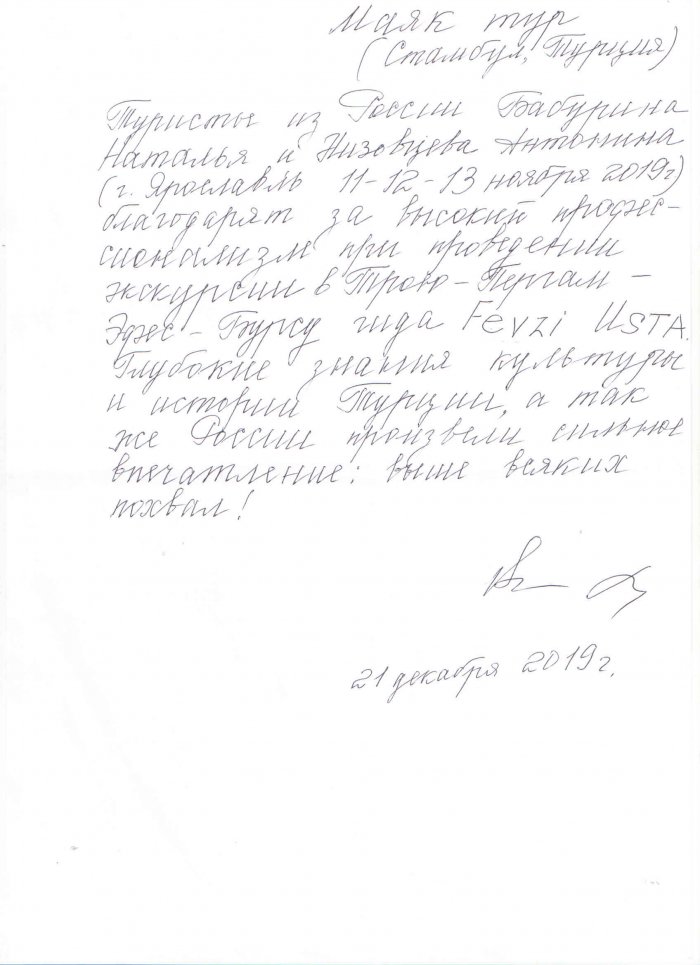 Маяк тур
(Стамбул, Турция)
Туристы из России Бабурина
Наталья и Низовцева Антонина
(г. Ярославль 11-12-13 ноября 2019г)
благодарят за высокий профес-
сионализм при проведении
экскурсии в Трою-Пергам-
Эфес-Бурсу гида Fevzi USTA.
Глубокие знания культуры
и истории Турции, а так
же России произвели сильное
впечатление: выше всяких
похвал!
21 декабря 2019г.